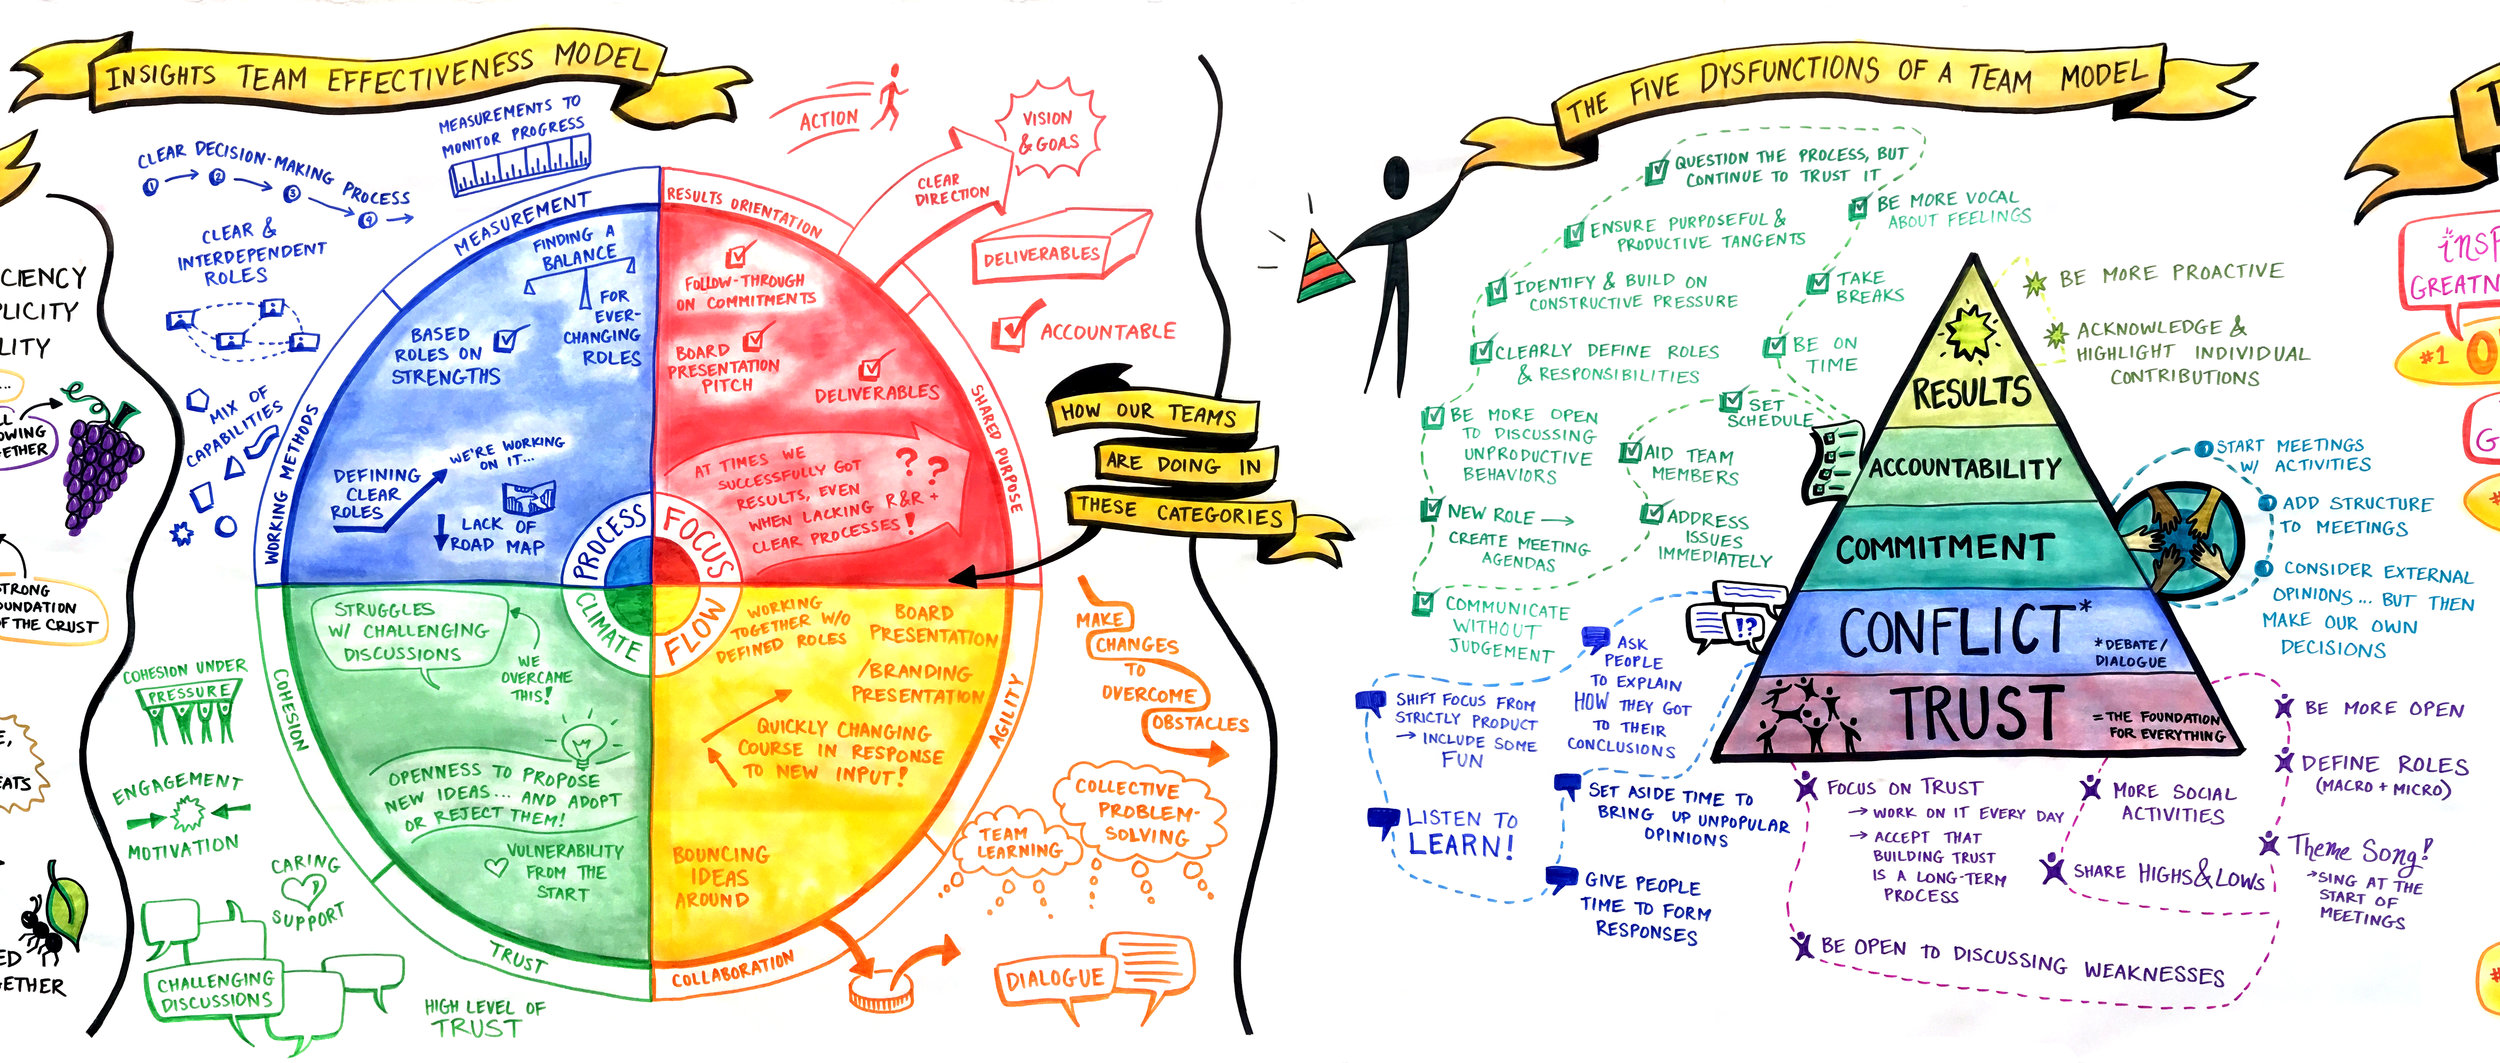 INSIGHTS TEAM EFFECTIVENESS MODEL
CIENCY
PLICITY
LITY
...
LL
OWING
ETHER
STRONG
OUNDATION
OF THE CRUST
E,
EATS
ED
GETHER
CLEAR DECISION-MAKING PROCESS
1
2
3
4
MEASUREMENTS TO
MONITOR PROGRESS
CLEAR &
INTERDEPENDENT
ROLES
MIX OF
CAPABILITIES
MEASUREMENT
WORKING METHODS
FINDING A
BALANCE
FOR
EVER-
CHANGING
ROLES
BASED
ROLES ON
STRENGTHS
DEFINING
CLEAR
ROLES
WE'RE WORKING
ON IT...
LACK OF
ROAD MAP
PROCESS
FOCUS
CLIMATE
FLOW
RESULTS ORIENTATION
SHARED PURPOSE
FOLLOW-THROUGH
ON COMMITMENTS
BOARD
PRESENTATION
PITCH
DELIVERABLES
AT TIMES WE
SUCCESSFULLY GOT
RESULTS, EVEN
WHEN LACKING R&R +
CLEAR PROCESSES!
? ?
ACTION
VISION
& GOALS
CLEAR
DIRECTION
DELIVERABLES
ACCOUNTABLE
HOW OUR TEAMS
ARE DOING IN
THESE CATEGORIES
COHESION
TRUST
STRUGGLES
W/ CHALLENGING
DISCUSSIONS
WE
OVERCAME
THIS!
OPENNESS TO PROPOSE
NEW IDEAS... AND ADOPT
OR REJECT THEM!
VULNERABILITY
FROM THE
START
COHESION UNDER
PRESSURE
ENGAGEMENT
MOTIVATION
CARING
SUPPORT
CHALLENGING
DISCUSSIONS
HIGH LEVEL OF
TRUST
AGILITY
COLLABORATION
WORKING
TOGETHER W/O
DEFINED ROLES
BOARD
PRESENTATION
/BRANDING
PRESENTATION
QUICKLY CHANGING
COURSE IN RESPONSE
TO NEW INPUT!
BOUNCING
IDEAS
AROUND
MAKE
CHANGES
TO
OVERCOME
OBSTACLES
COLLECTIVE
PROBLEM-
SOLVING
TEAM
LEARNING
DIALOGUE
THE FIVE DYSFUNCTIONS OF A TEAM MODEL
QUESTION THE PROCESS, BUT
CONTINUE TO TRUST IT
ENSURE PURPOSEFUL &
PRODUCTIVE TANGENTS
IDENTIFY & BUILD ON
CONSTRUCTIVE PRESSURE
CLEARLY DEFINE ROLES
& RESPONSIBILITIES
BE MORE OPEN
TO DISCUSSING
UNPRODUCTIVE
BEHAVIORS
NEW ROLE →
CREATE MEETING
AGENDAS
COMMUNICATE
WITHOUT
JUDGEMENT
BE MORE VOCAL
ABOUT FEELINGS
TAKE
BREAKS
BE ON
TIME
SET
SCHEDULE
AID TEAM
MEMBERS
ADDRESS
ISSUES
IMMEDIATELY
RESULTS
ACCOUNTABILITY
COMMITMENT
CONFLICT*
*DEBATE/
DIALOGUE
TRUST
=THE FOUNDATION
FOR EVERYTHING
!?
BE MORE PROACTIVE
ACKNOWLEDGE &
HIGHLIGHT INDIVIDUAL
CONTRIBUTIONS
START MEETINGS
W/ ACTIVITIES
ADD STRUCTURE
TO MEETINGS
CONSIDER EXTERNAL
OPINIONS... BUT THEN
MAKE OUR OWN
DECISIONS
ASK
PEOPLE
TO EXPLAIN
HOW THEY GOT
TO THEIR
CONCLUSIONS
SHIFT FOCUS FROM
STRICTLY PRODUCT
→ INCLUDE SOME
FUN
LISTEN TO
LEARN!
SET ASIDE TIME TO
BRING UP UNPOPULAR
OPINIONS
GIVE PEOPLE
TIME TO FORM
RESPONSES
FOCUS ON TRUST
→ WORK ON IT EVERY DAY
→ ACCEPT THAT
BUILDING TRUST
IS A LONG-TERM
PROCESS
MORE SOCIAL
ACTIVITIES
SHARE HIGHS & LOWS
BE OPEN TO DISCUSSING WEAKNESSES
BE MORE OPEN
DEFINE ROLES
(MACRO + MICRO)
THEME SONG!
→SING AT THE
START OF
MEETINGS
INSP
GREATN
#1 O
G